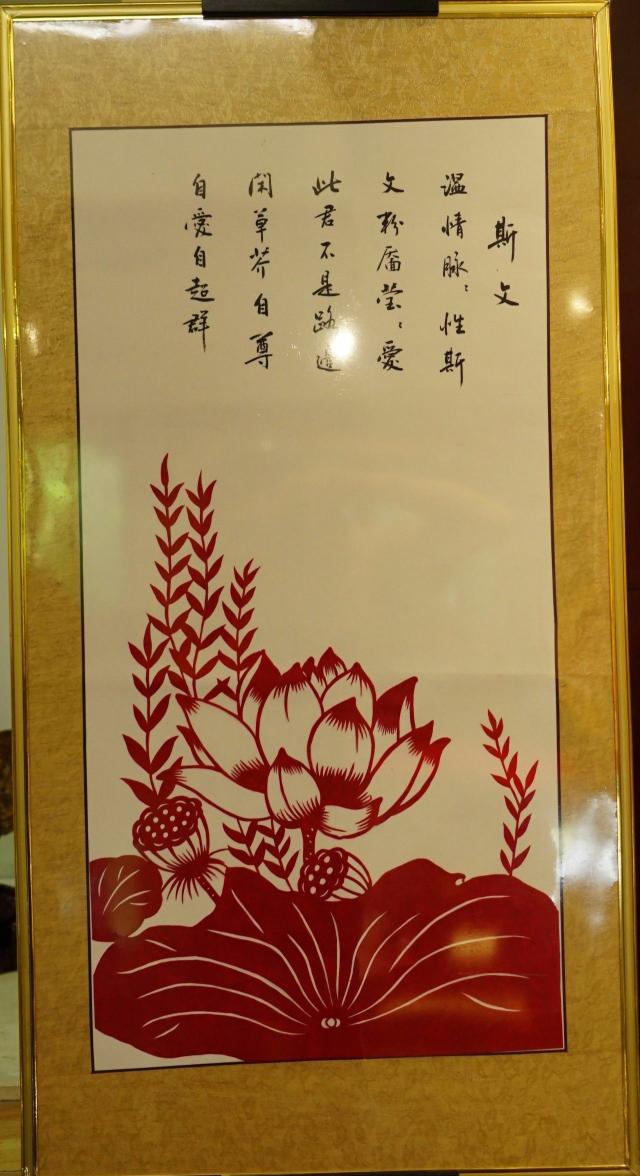 斯文
温情脉〻性斯
文粉靥莹〻愛
此君不是路邊
闲草芥自尊
自愛自超群